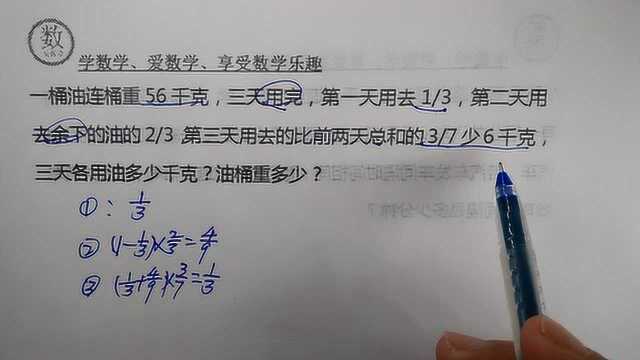 数
学数学、爱数学、享受数学乐趣
一桶油连桶重 56 千克，三天用完，第一天用去 1/3，第二天用
去余下的油的 2/3,第三天用去的比前两天总和的 3/7 少 6 千克，
三天各用油多少千克？油桶重多少？
①：1/3
② (1-1/3)×2/3=4/9
③ (1/3+4/9)×3/7=1/3